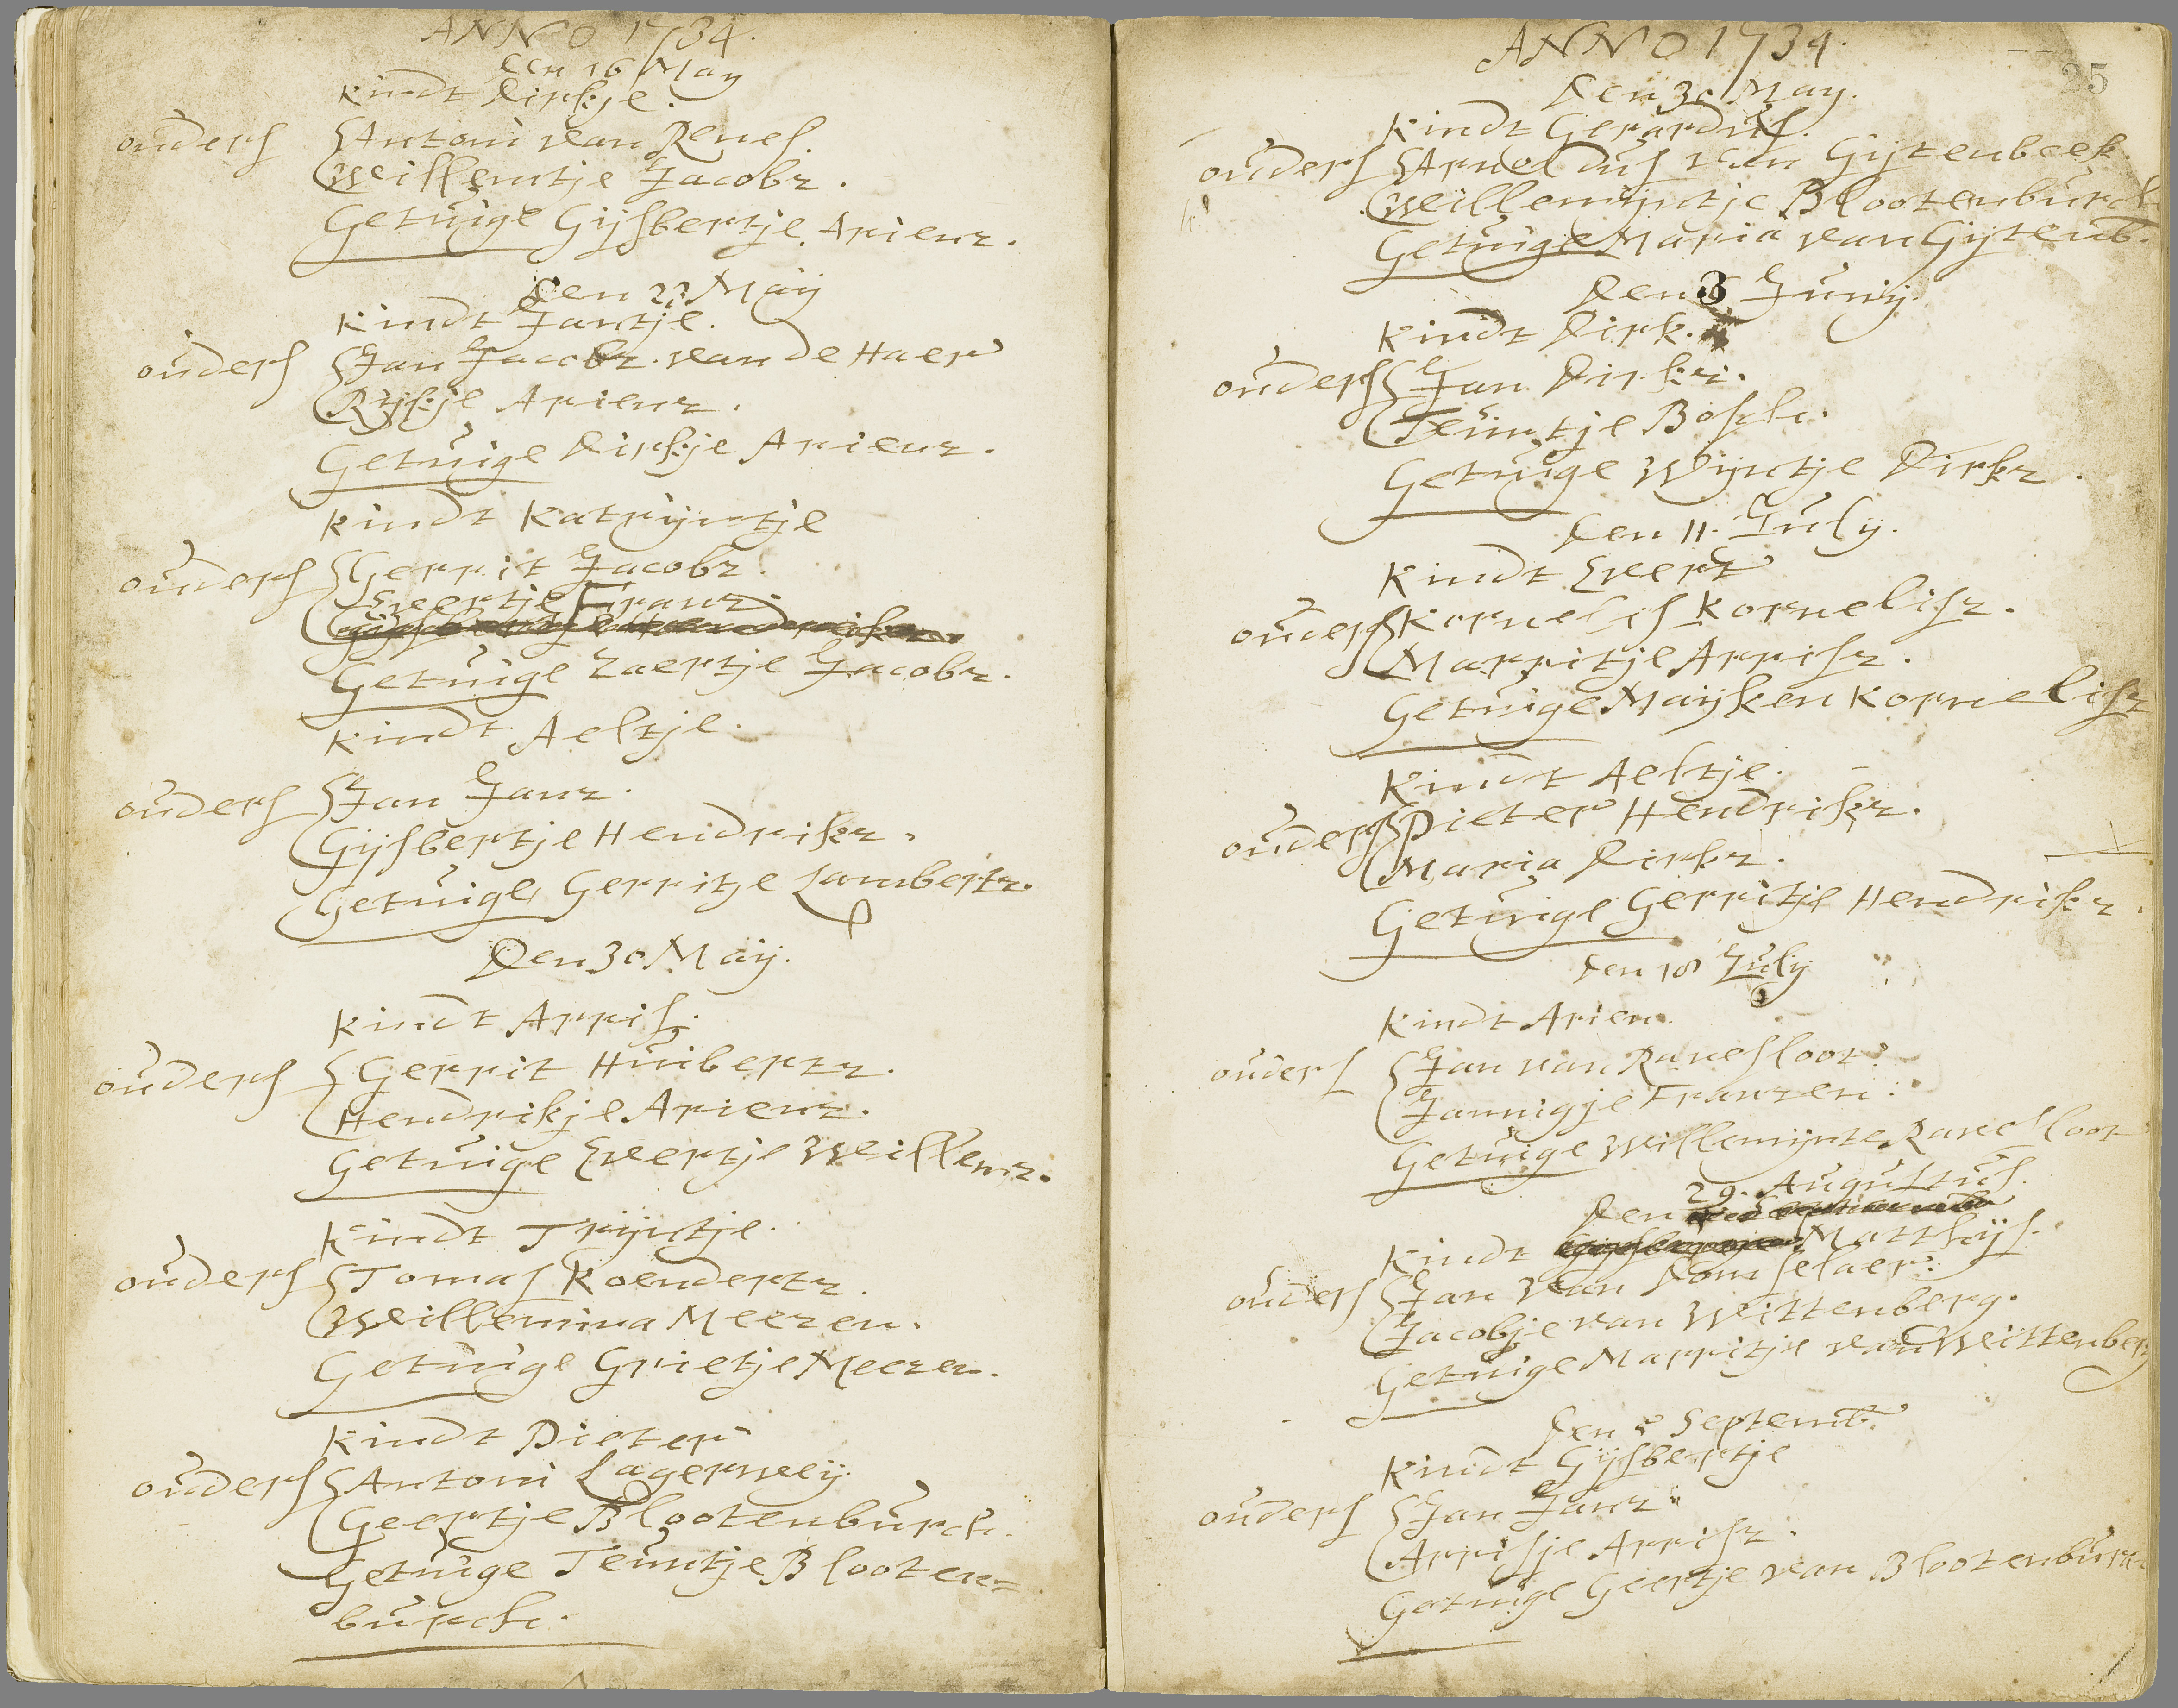 ANNO 1734.
den 16 May
Kindt Dirkje.
ouders Antoni van Renes.
Willemtje Jacobz.
Getuige Gijsbertje Arienz.
Den 23 Maÿ
Kindt Jantje.
ouders Jan Jacobz. van de Haer
Rijkje Arienz.
Getuige Dirkje Arienz.
Kindt Katrijntje
ouders Gerrit Jacobz.
Evertje Franz.
Getuige Zaertje Jacobz.
Kindt Aeltje.
ouders Jan Janz.
Gijsbertje Hendrikz.
Getuige Gerritje Lambertz.
Den 30 Maÿ.
Kindt Arris.
ouders Gerrit Huibertz.
Hendrikje Arienz.
Getuige Evertje Willemz.
Kindt Trijntje.
ouders Tomas Koendertz.
Willemina Meezen.
Getuige Grietje Meezen.
Kindt Pieter
ouders Antoni Lagerweij.
Geertje Blootenburch.
Getuige Teuntje Blooten=
burch.
ANNO 1734.
25
Den 30 May.
Kindt Gerardus.
ouders Arnoldus van Gijtenbeek
Willemijntje Blootenburch
Getuige Maria van Gijtenb.
Den 3 Junij
Kindt Dirk.
ouders Jan Dirkz.
Teuntje Bosch.
Getuige Wijntje Dirkz.
Den 11. July.
Kindt Evert
ouders Kornelis Kornelisz.
Marritje Arrisz.
Getuige Mayken Kornelisz
Kindt Aeltje.
ouders Pieter Hendrikz.
Maria Dirkz.
Getuige Gerritje Hendrikz.
den 18 July
Kindt Arien.
ouders Jan van Ravesloot
Jannigje Franzen.
Getuige Willemijnte Ravesloot
Den 29. Augustus.
Kindt Matthijs.
ouders Jan van Domselaer.
Jacobje van Wittenberg.
Getuige Marritje van Wittenberg
Den 5 Septemb.
Kindt Gijsbertje
ouders Jan Janz.
Arrisje Arrisz.
Getuige Geertje van Blootenburch